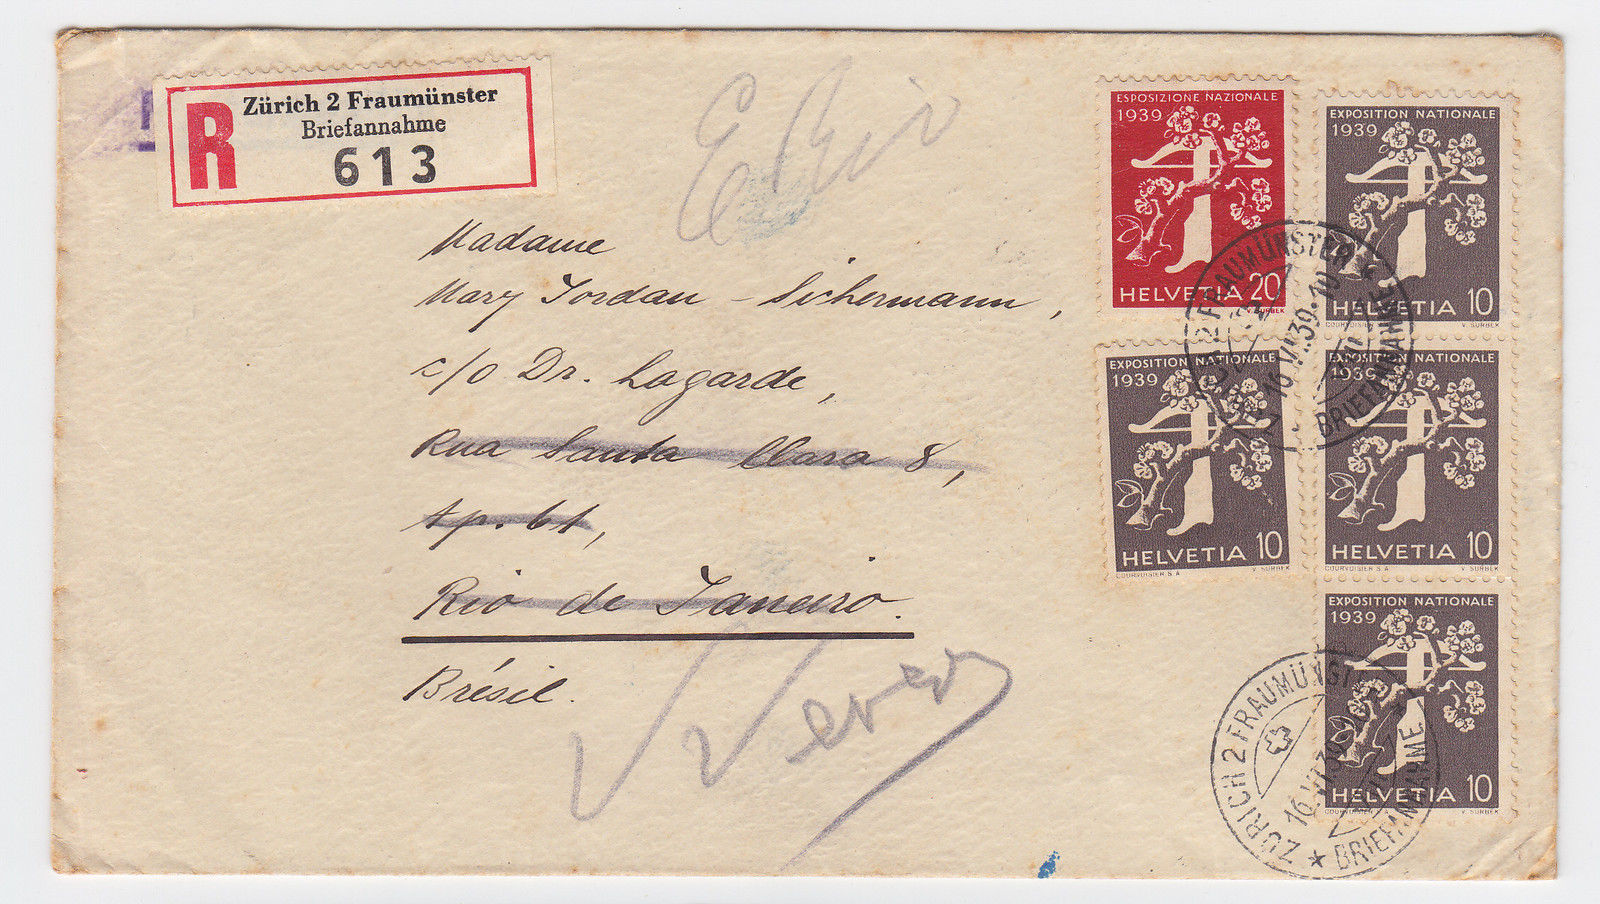 R
Zürich 2 Fraumünster
Briefannahme
613
Madame
Mary Jordan - Sichermann,
c/o Dr. Lagarde,
Rua Santa Clara 8,
Ap. 61,
Rio de Janeiro.
Brésil.
ESPOSIZIONE NAZIONALE
1939
HELVETIA 20
V. SURBEK
EXPOSITION NATIONALE
1939
HELVETIA 10
COURVOISIER V. SURBEK
EXPOSITION NATIONALE
1939
HELVETIA 10
COURVOISIER S.A. V. SURBEK
EXPOSITION NATIONALE
1939
HELVETIA 10
COURVOISIER S.A. V. SURBEK
EXPOSITION NATIONALE
1939
HELVETIA 10
COURVOISIER V. SURBEK
2 FRAUMÜNSTER
16.VI.39.10
BRIEFANNAHME
ZÜRICH 2 FRAUMÜNSTER
16.VI.39
BRIEFANNAHME